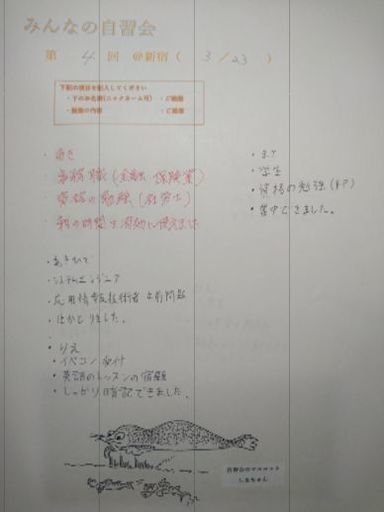 みんなの自習会
第 4 回 @新宿 ( 3 / 23 )
下記の項目を記入してください
・下のお名前(ニックネーム可) ・ご職業
・勉強の内容 ・ご感想
・あき
・事務職(金融・保険業)
・資格の勉強(社労士)
・朝の時間を有効に使えました
・あきひで
・システムエンジニア
・応用情報技術者 午前問題
・はかどりました。
・りえ
・イベント受付
・英語のレッスンの宿題
・しっかり暗記できました。
・学生
・資格の勉強(FP)
・集中できました。
自習会のマスコット
しまちゃん